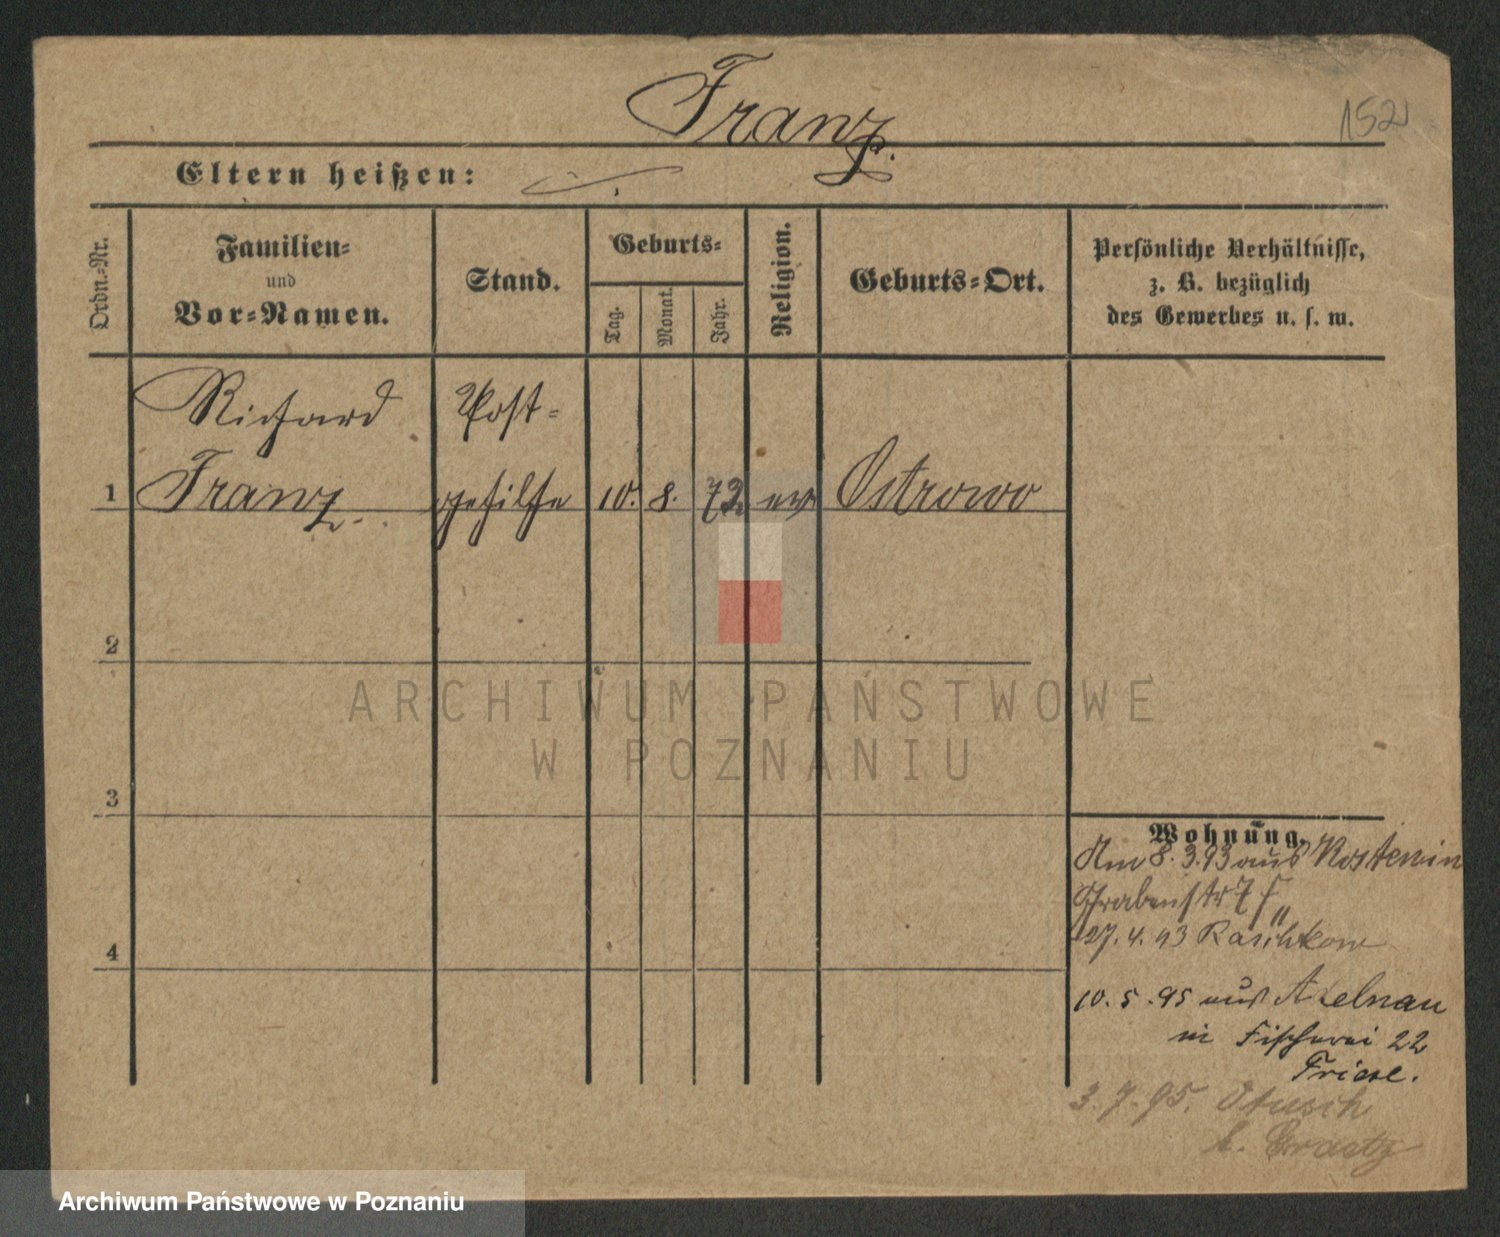 Franz.
152
Eltern heißen:
Ordn.-Nr.
Familien-
und
Vor-Namen.
Stand.
Geburts-
Tag.
Monat.
Jahr.
Religion.
Geburts-Ort.
Persönliche Verhältnisse,
z. B. bezüglich
des Gewerbes u. s. w.
Richard
Post-
1 Franz. gehilfe 10. 8. 72 ev. Ostrowo
2
3
4
ARCHIWUM PAŃSTWOWE
W POZNANIU
Wohnung.
Am 8.3.93 aus Kostenin
Grabenstr 7
27.4.93 Raschkow
10.5.95 aus Adelnau
in Fischerei 22
3.7.95. Otusch
b. Graetz
Archiwum Państwowe w Poznaniu